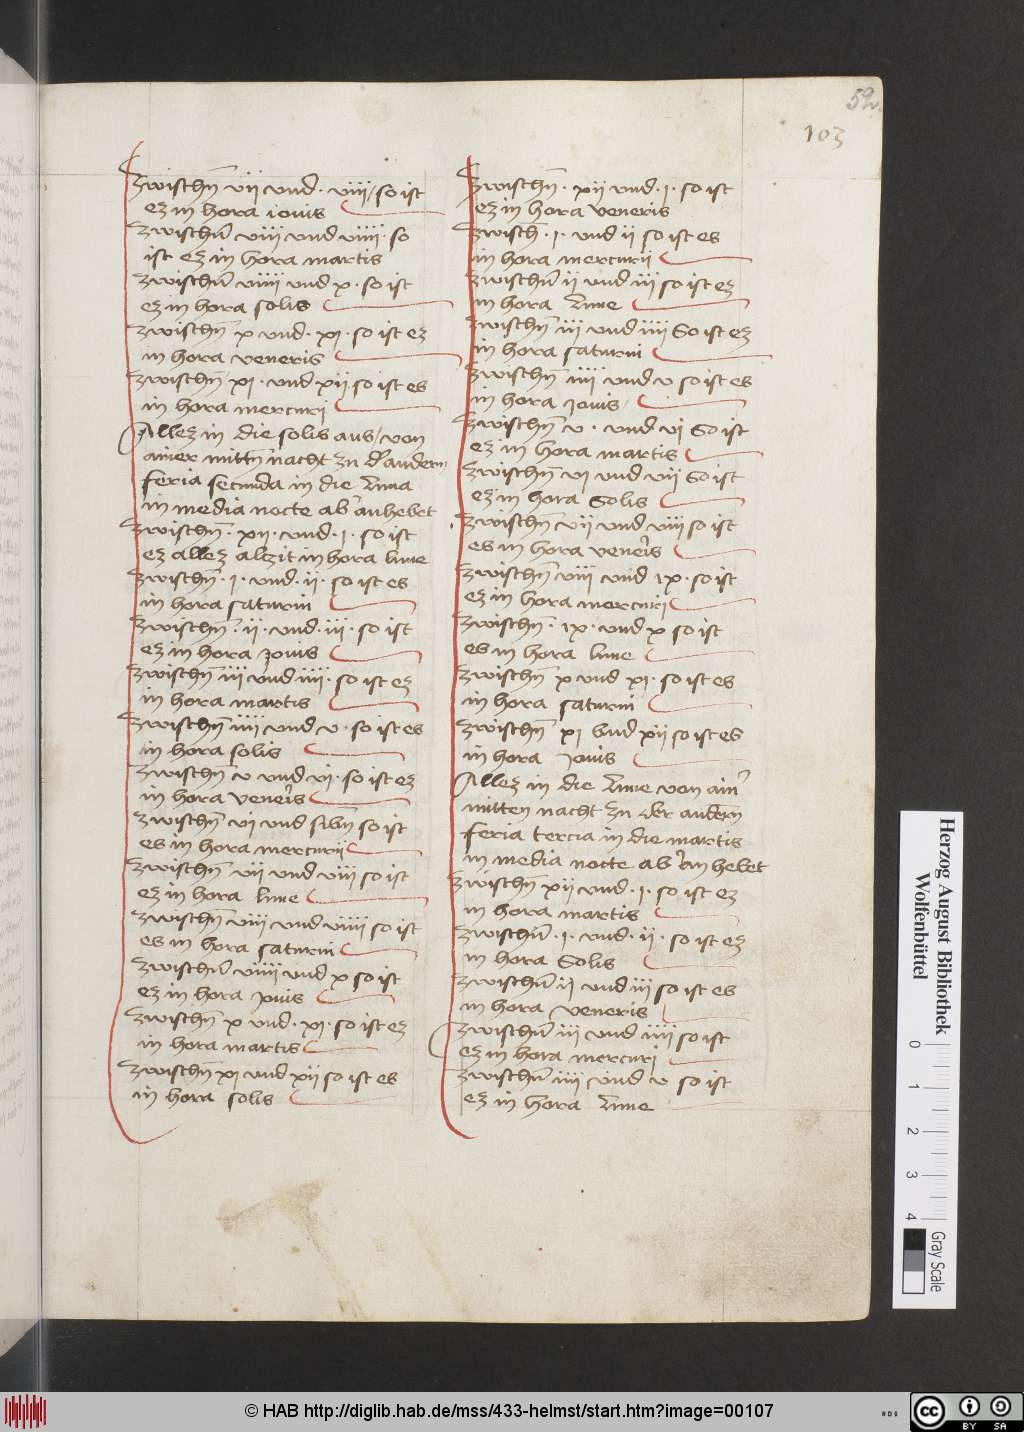 59.
103
Zwischn̄ vii vnd · viii / so ist
ez in hora iouis
Zwischn̄ viii vnd viiii · so
ist ez in hora martis
Zwischn̄ viiii vnd x · so ist
ez in hora solis
Zwischn̄ x vnd · xi · so ist ez
in hora veneris
Zwischn̄ xi · vnd xii so ist es
in hora mercurij
Allez in die solis aus / von
ainer mittn̄ nacht zu d' andern
feria secunda in die Lune
in media nocte ab anhebet
Zwischn̄ · xii · vnd · i · so ist
ez allez alzit in hora lune
Zwischn̄ · i · vnd · ii · so ist es
in hora saturni
Zwischn̄ · ii · vnd · iii · so ist
ez in hora jouis
Zwischn̄ iii vnd iiii · so ist ez
in hora martis
Zwischn̄ iiii vnd v · so ist es
in hora solis
Zwischn̄ v vnd vi · so ist ez
in hora veneris
Zwischn̄ vi vnd sibn̄ so ist
es in hora mercurij
Zwischn̄ vii vnd viii so ist
ez in hora lune
Zwischn̄ viii vnd viiii so ist
es in hora saturni
Zwischn̄ viiii vnd x so ist
ez in hora jouis
Zwischn̄ x vnd · xi · so ist ez
in hora martis
Zwischn̄ xi vnd xii so ist es
in hora solis
Zwischn̄ · xii vnd · i · so ist
ez in hora veneris
Zwisch̄ · i · vnd ii so ist es
in hora mercurij
Zwischn̄ ii vnd iii so ist ez
in hora Lune
Zwischn̄ iii vnd iiii So ist ez
in hora saturni
Zwischn̄ iiii vnd v so ist es
in hora jouis
Zwischn̄ v · vnd vi So ist
ez in hora martis
Zwischn̄ vi vnd vii So ist
ez in hora Solis
Zwischn̄ vii vnd viii so ist
es in hora veneris
Zwischn̄ viii vnd ix · so ist
ez in hora mercurij
Zwischn̄ · ix · vnd x so ist
es in hora lune
Zwischn̄ x vnd xi · so ist es
in hora saturni
Zwischn̄ xi vnd xii so ist es
in hora jouis
Allez in die Lune von ain'
mitten nacht zu der andern
feria tercia in die martis
in media nocte ab an hebet
Zwischn̄ xii vnd · i · so ist ez
in hora martis
Zwischn̄ · i · vnd · ii · so ist ez
in hora Solis
Zwischn̄ ii vnd iii so ist es
in hora veneris
Zwischn̄ iii vnd iiii so ist
ez in hora mercurj
Zwischn̄ iiii vnd v so ist
ez in hora Lune
Herzog August Bibliothek
Wolfenbüttel
0 1 2 3 4
Gray Scale
© HAB http://diglib.hab.de/mss/433-helmst/start.htm?image=00107
cc BY SA